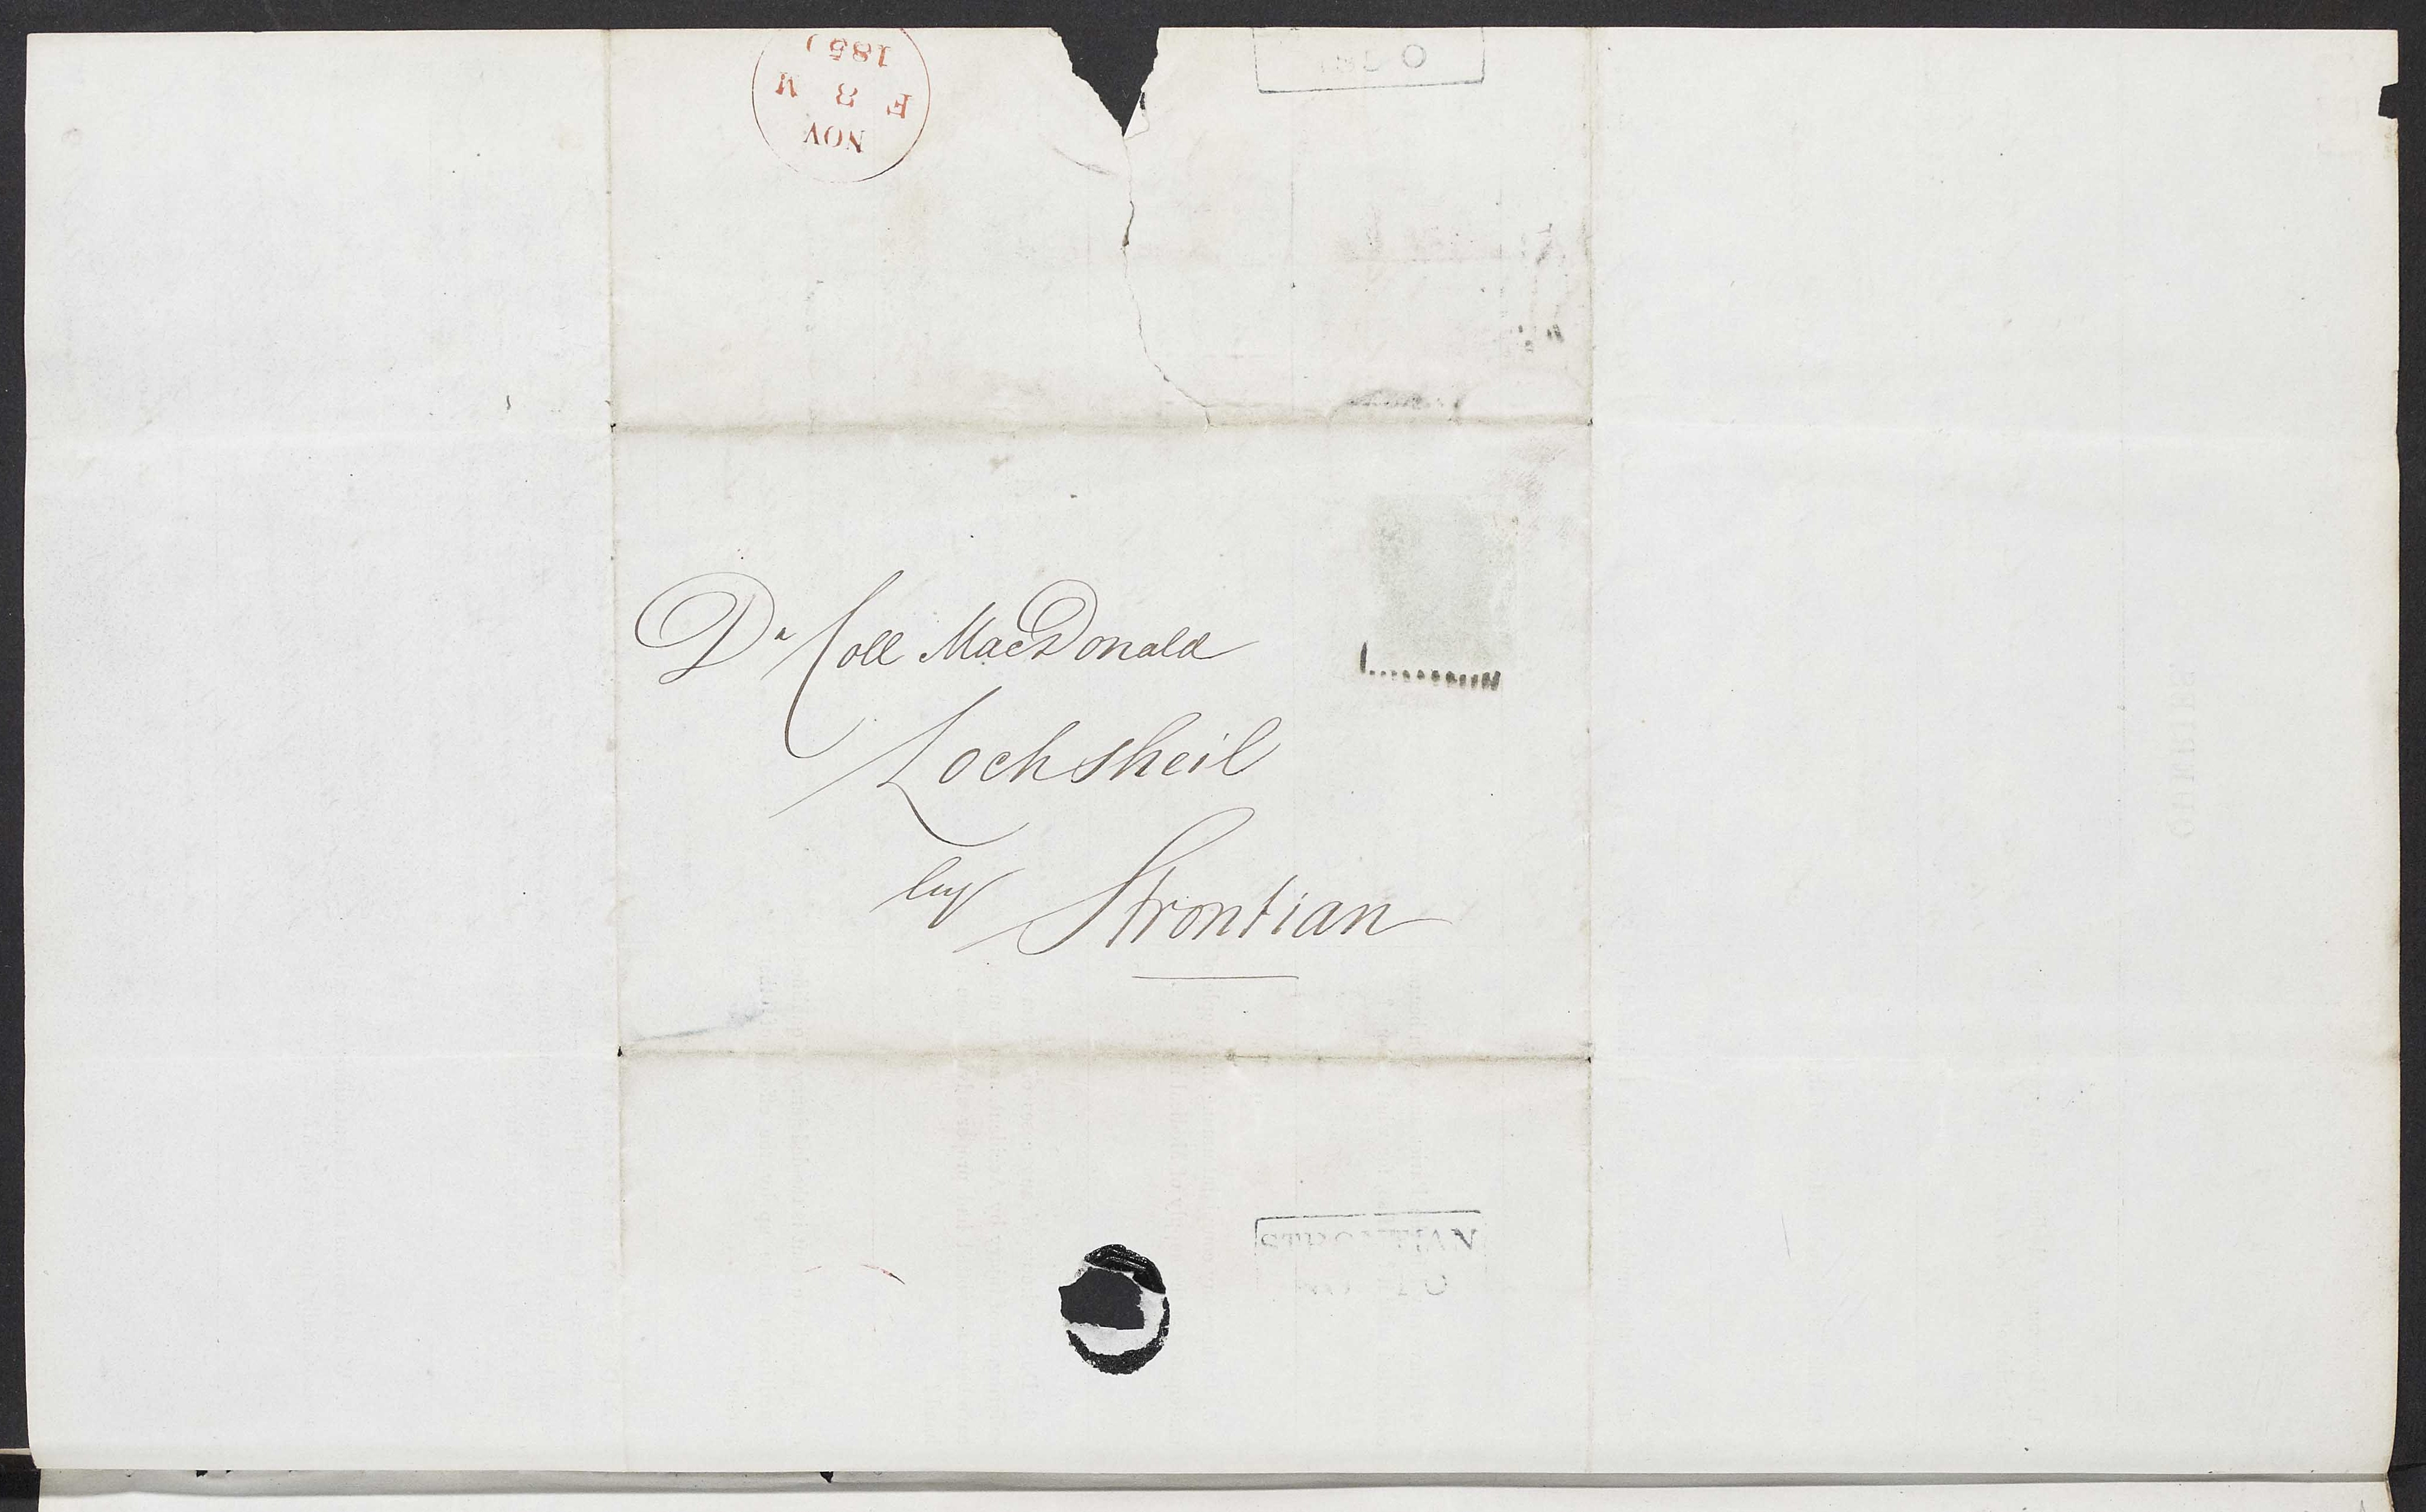 NOV
F 8 M
185
Dr Coll MacDonald
Lochsheil
by Strontian
STRONTIAN